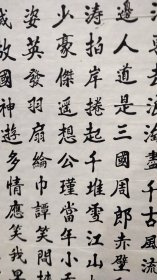 去浪淘盡千古風流
邊人道是三國周郎赤壁
濤拍岸捲起千堆雪江山
少豪傑遙想公瑾當年小
姿英發羽扇綸巾譚笑間
故國神遊多情應笑我